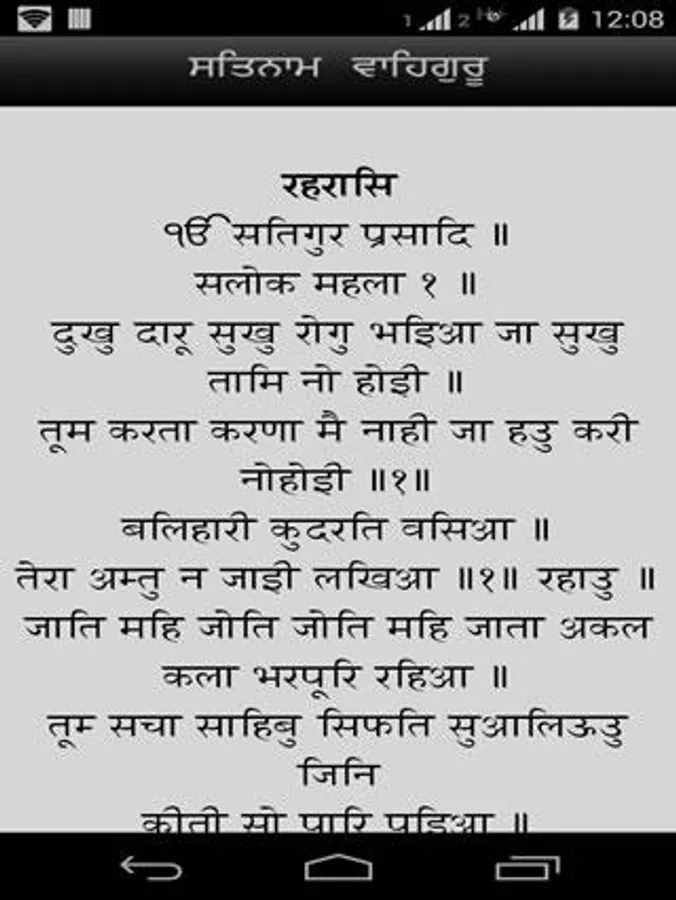 12:08
ਸਤਿਨਾਮ ਵਾਹਿਗੁਰੂ
रहरासि
ੴ सतिगुर प्रसादि ॥
सलोक महला १ ॥
दुखु दारू सुखु रोगु भइिआ जा सुखु
तामि नो होइी ॥
तूम करता करणा मै नाही जा हउु करी
नोहोइी ॥१॥
बलिहारी कुदरति वसिआ ॥
तेरा अम्तु न जाइी लखिआ ॥१॥ रहाउु ॥
जाति महि जोति जोति महि जाता अकल
कला भरपूरि रहिआ ॥
तूम्म सचा साहिबु सिफति सुआलिऊउु
जिनि
कीती सो पारि पइिआ ॥